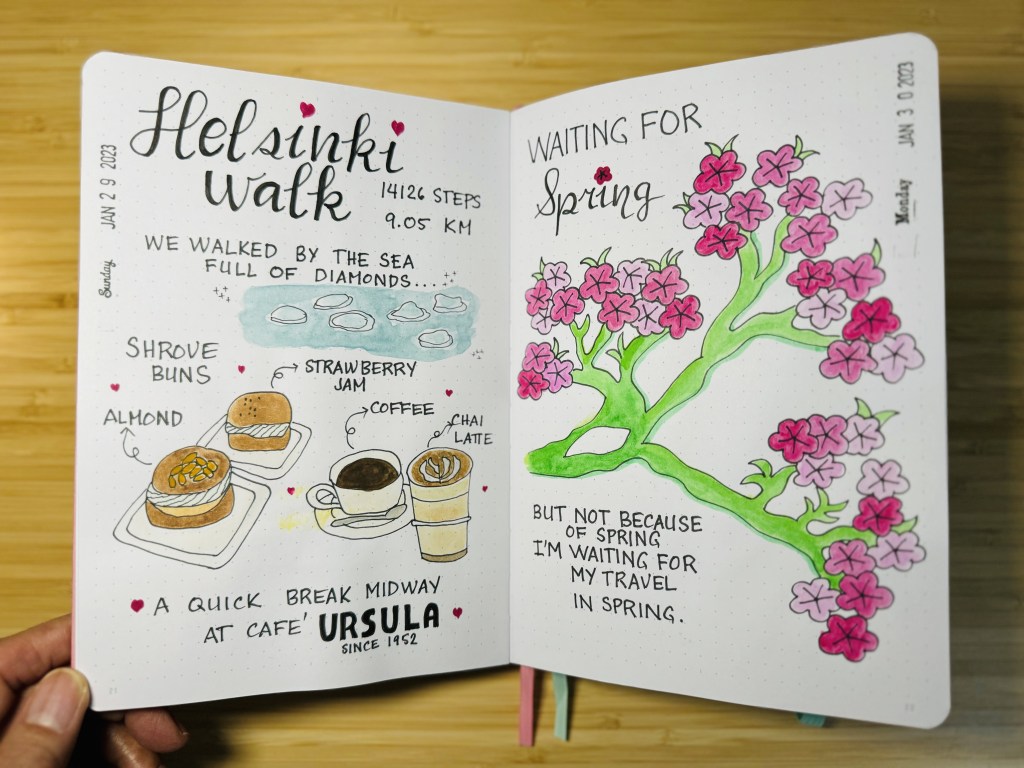 JAN 29 2023
Sunday
Helsinki
Walk
14126 STEPS
9.05 KM
WE WALKED BY THE SEA
FULL OF DIAMONDS...
SHROVE
BUNS
STRAWBERRY
JAM
ALMOND
COFFEE
CHAI
LATTE
A QUICK BREAK MIDWAY
AT CAFE' URSULA
SINCE 1952
WAITING FOR
Spring
JAN 30 2023
Monday
BUT NOT BECAUSE
OF SPRING
I'M WAITING FOR
MY TRAVEL
IN SPRING.